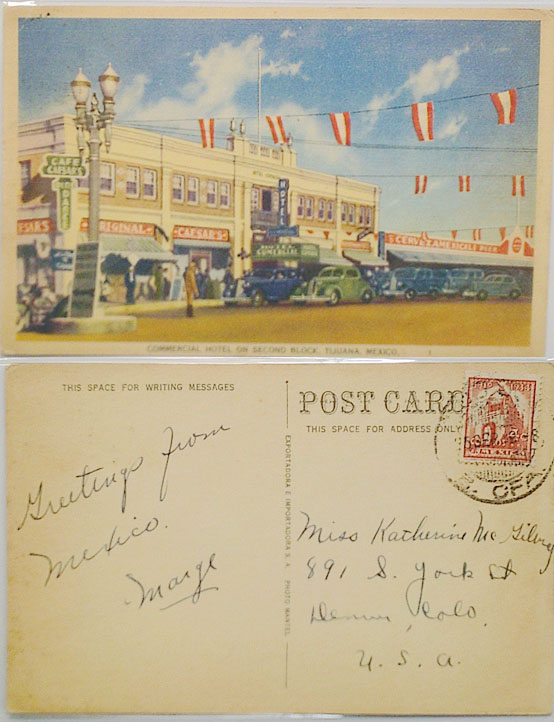 CAFE
CAESAR'S
ORIGINAL
CAESAR'S
HOTEL
COMMERCIAL
CERVETAMERICALI
COMMERCIAL HOTEL ON SECOND BLOCK, TIJUANA, MEXICO.
THIS SPACE FOR WRITING MESSAGES
POST CARD
THIS SPACE FOR ADDRESS ONLY
Greetings from
Mexico.
Marge
EXPORTADORA E IMPORTADORA S. A. PHOTO MANTEL
Miss Katherine McGilvry
891 S. York St
Denver, Colo.
U. S. A.